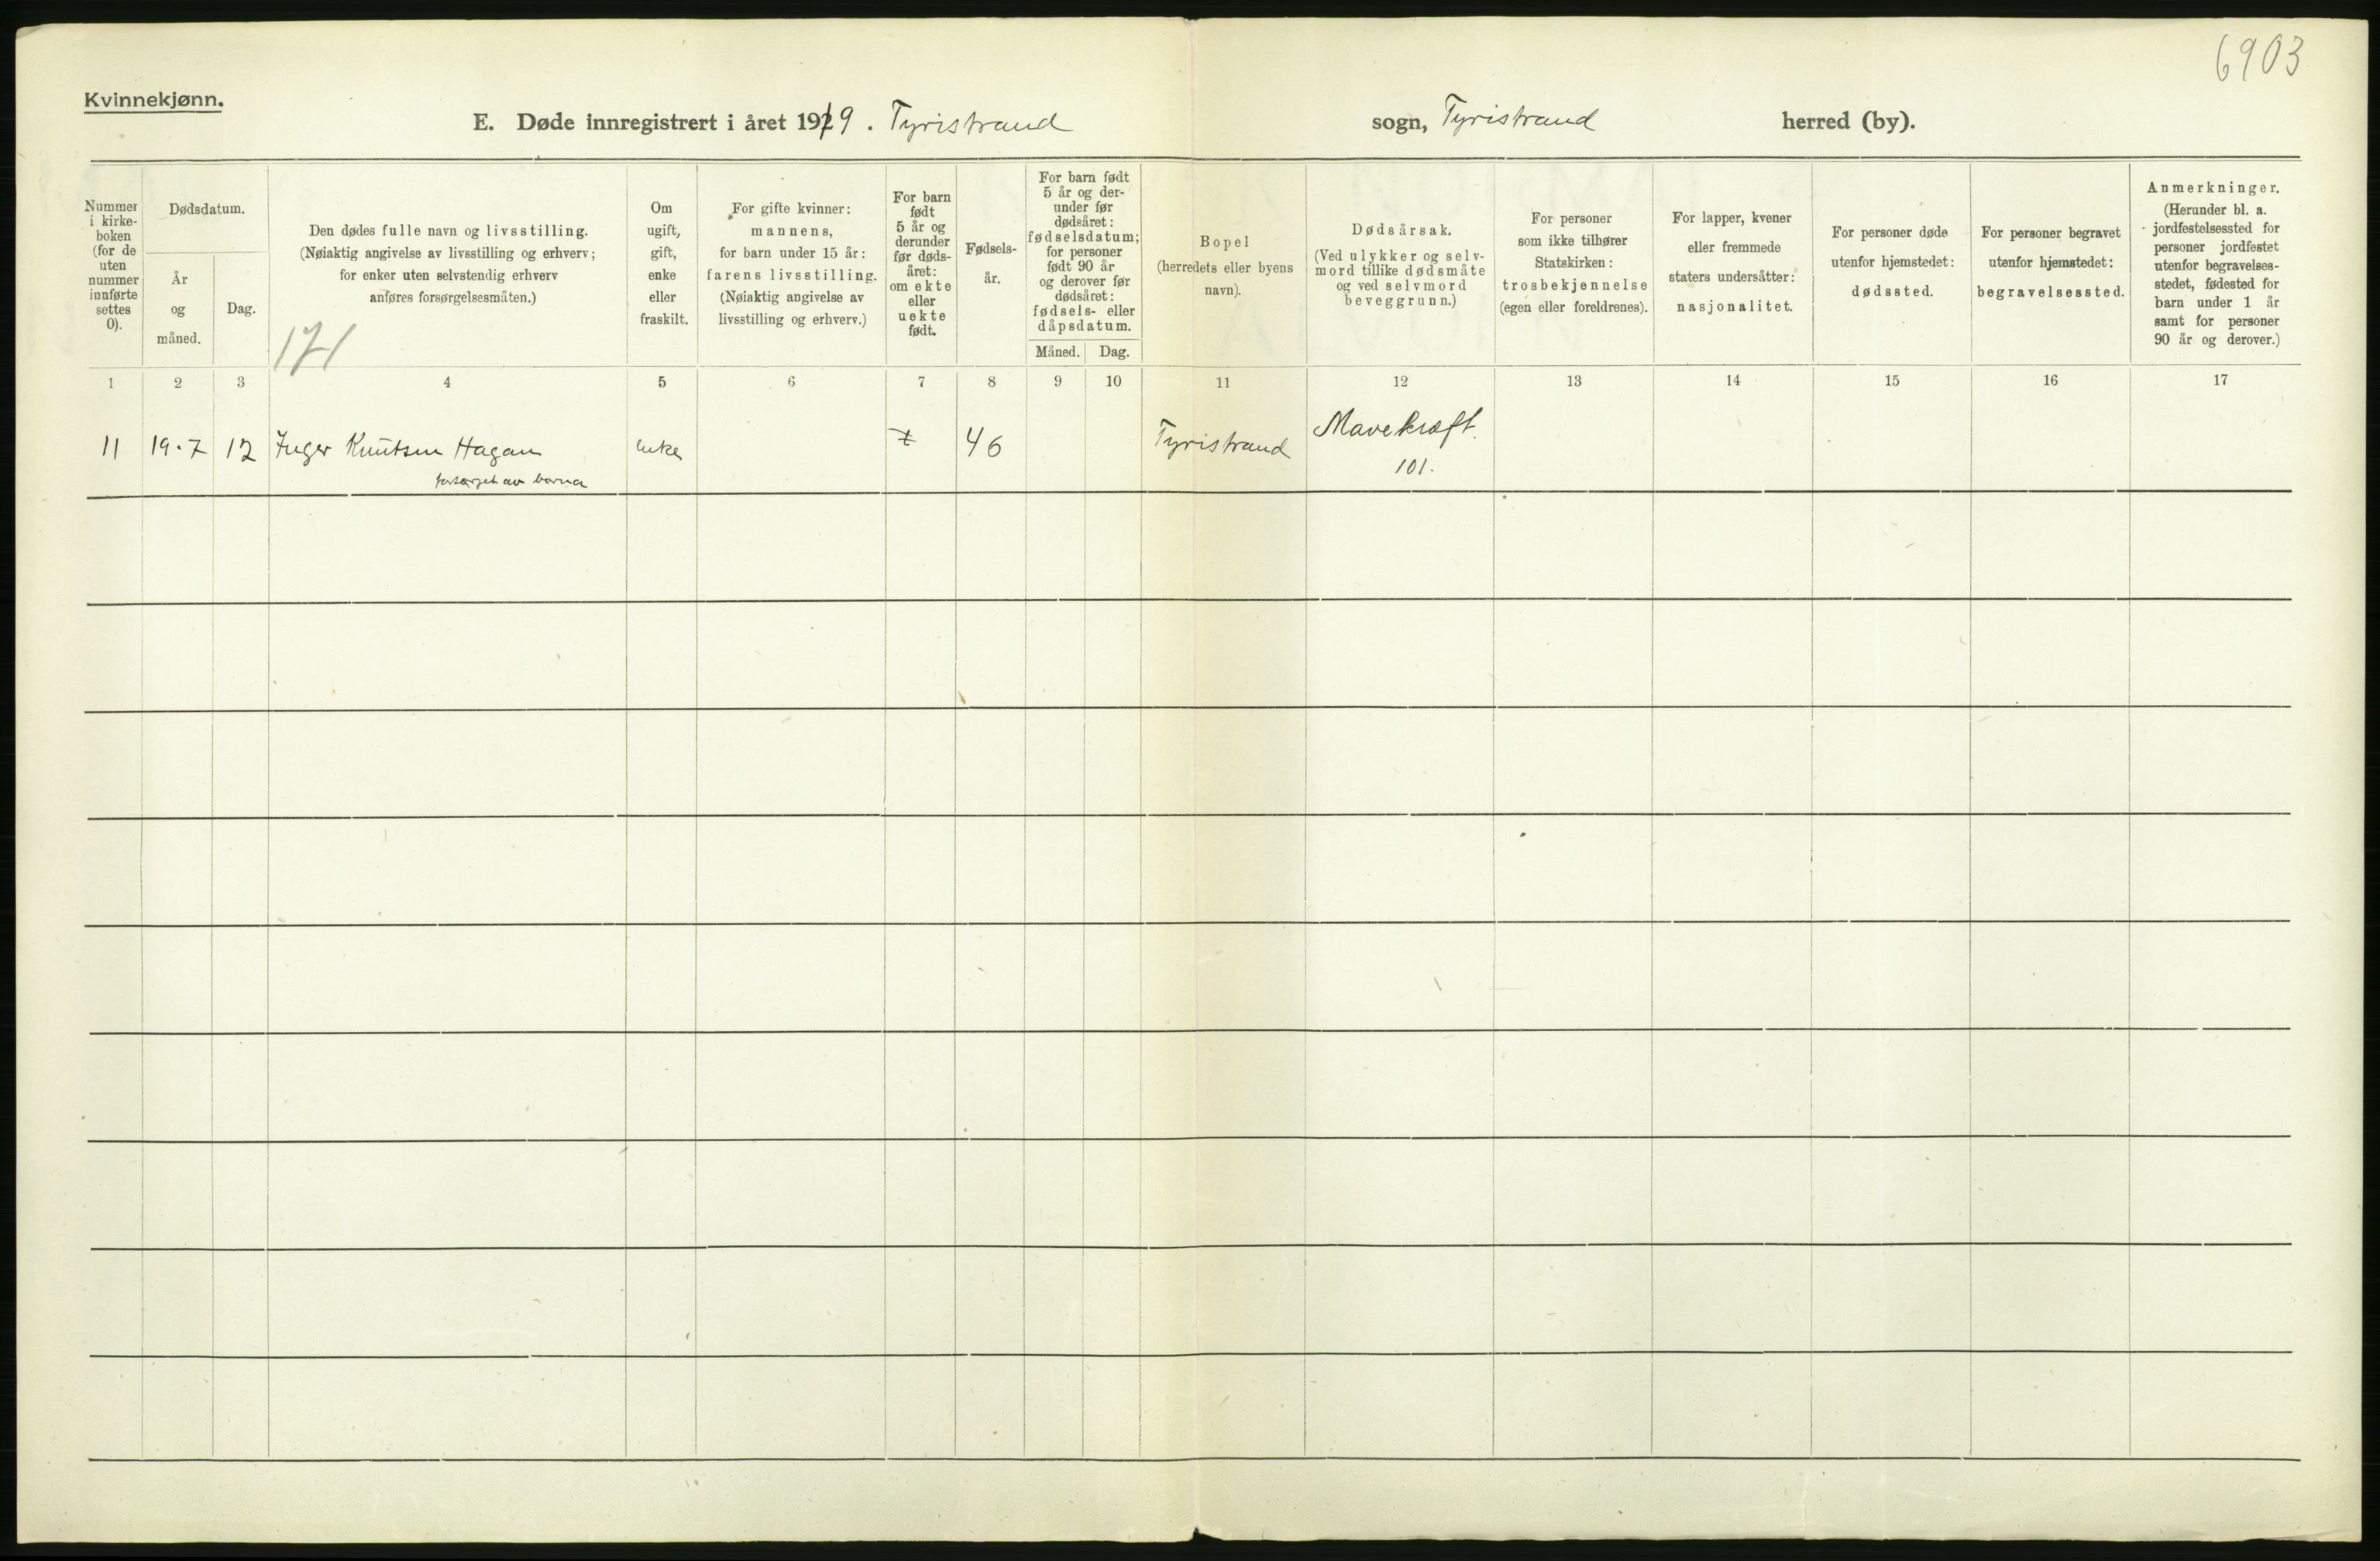 6903
Kvinnekjønn.
E. Døde innregistrert i året 1919. Tyristrand sogn, Tyristrand herred (by).
Nummer
i kirke-
boken
(for de
uten
nummer
innførte
settes
0).
Dødsdatum.
År
og
måned.
Dag.
Den dødes fulle navn og livsstilling.
(Nøiaktig angivelse av livsstilling og erhverv;
for enker uten selvstendig erhverv
anføres forsørgelsesmåten.)
171
Om
ugift,
gift,
enke
eller
fraskilt.
For gifte kvinner:
mannens,
for barn under 15 år:
farens livsstilling.
(Nøiaktig angivelse av
livsstilling og erhverv.)
For barn
født
5 år og
derunder
før døds-
året:
om ekte
eller
uekte
født.
Fødsels-
år.
For barn født
5 år og der-
under før
dødsåret:
fødselsdatum;
for personer
født 90 år
og derover før
dødsåret:
fødsels- eller
dåpsdatum.
Måned. Dag.
Bopel
(herredets eller byens
navn).
Dødsårsak.
(Ved ulykker og selv-
mord tillike dødsmåte
og ved selvmord
beveggrunn.)
For personer
som ikke tilhører
Statskirken:
trosbekjennelse
(egen eller foreldrenes).
For lapper, kvener
eller fremmede
staters undersåtter:
nasjonalitet.
For personer døde
utenfor hjemstedet:
dødssted.
For personer begravet
utenfor hjemstedet:
begravelsessted.
Anmerkninger.
(Herunder bl. a.
jordfestelsessted for
personer jordfestet
utenfor begravelses-
stedet, fødested for
barn under 1 år
samt for personer
90 år og derover.)
1 2 3 4 5 6 7 8 9 10 11 12 13 14 15 16 17
11 19.7 12 Inger Knutsen Hagan enke 46 Tyristrand Mavekræft.
forsørget av barna 101.